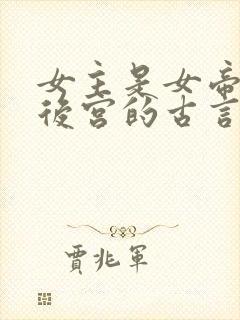 女主是女帝
後宮的古言
賈兆軍